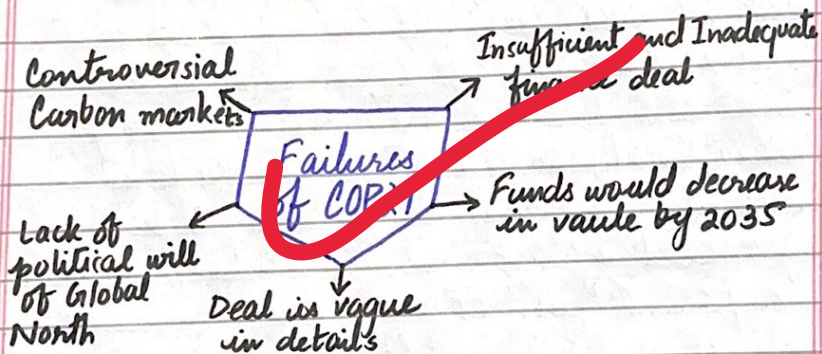 Controversial
Carbon markets
Insufficient and Inadequate
finance deal
Failures
of COP
Funds would decrease
in vaule by 2035
Lack of
political will
of Global
North
Deal is vague
in details